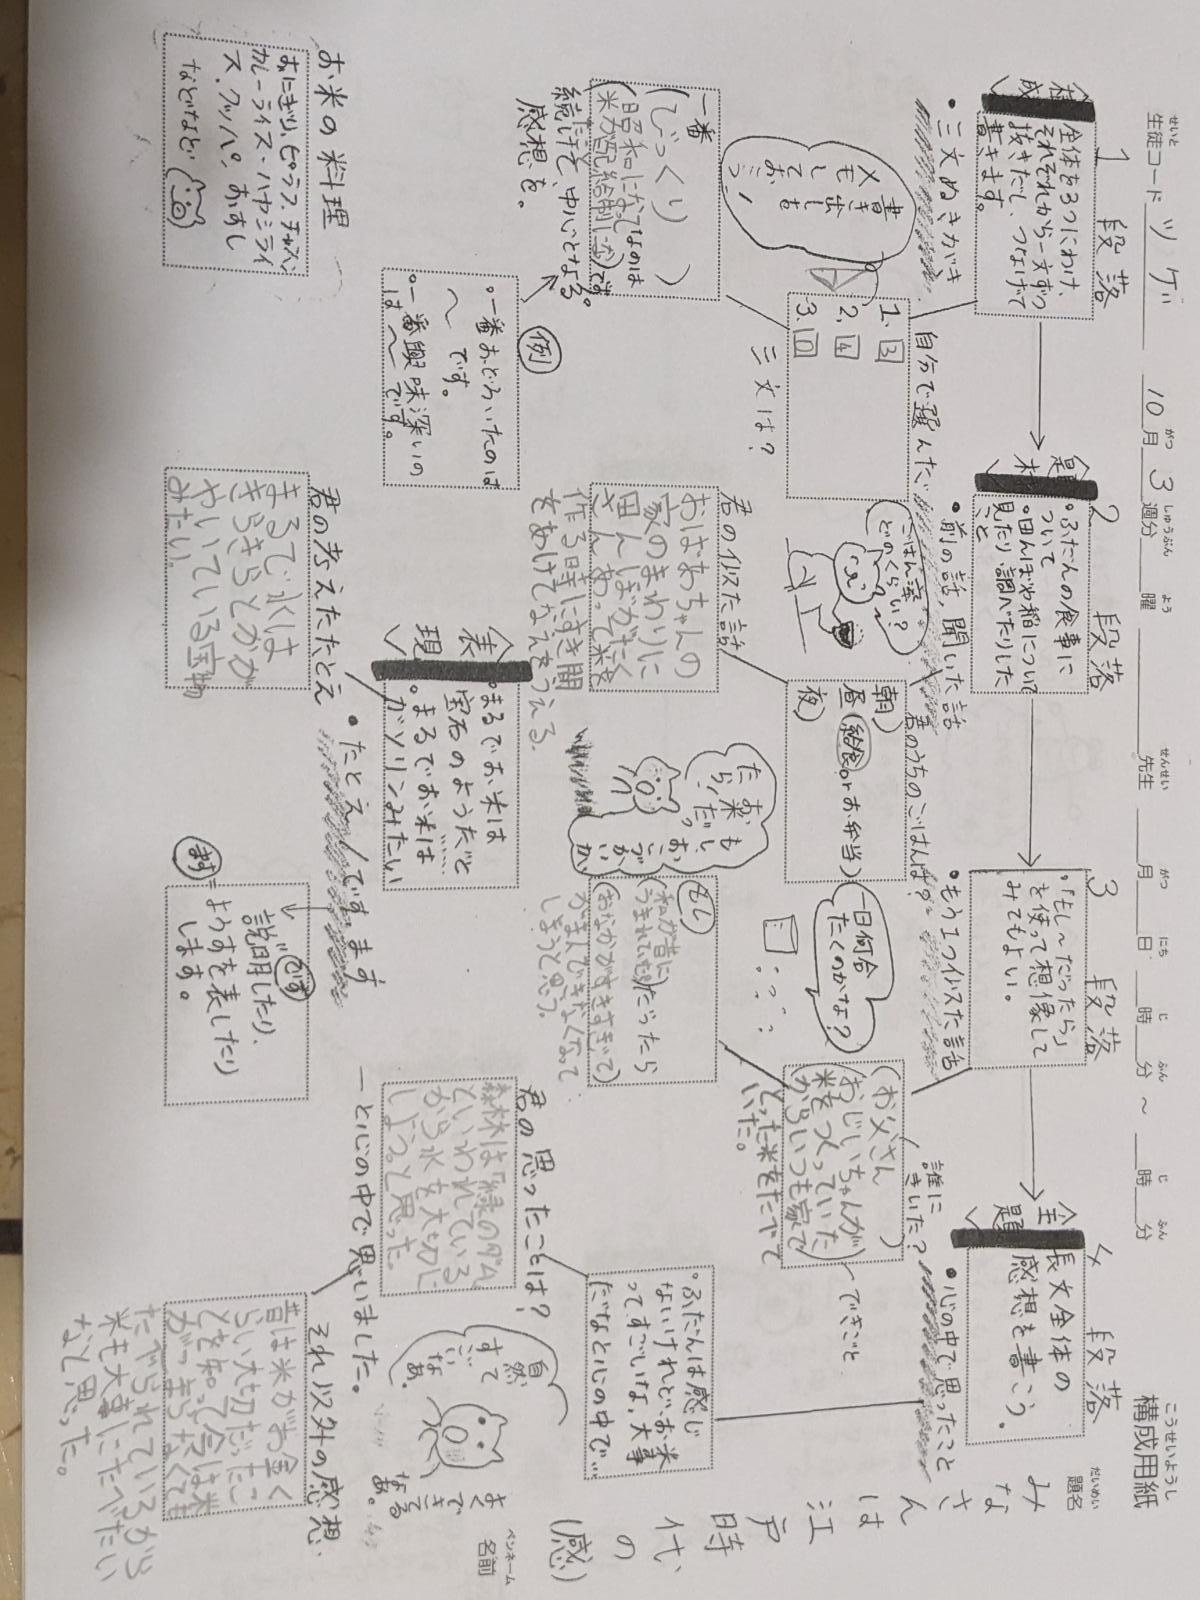 構成用紙
こうせいようし
題名
だいめい
みなさんは江戸時代の(感)
ペンネーム
名前
せいと
生徒コード ツゲ
10月3週分 曜 先生 月 日 時 分 ~ 時 分
1 段落
構成
全体を3つにわけ、
それぞれから一文ずつ
抜きだし、つなげて
書きます。
・三文ぬきがき
自分で選んだ
三文は?
1. 3
2. 4
3. 10
書き出しも
メモして
おこう!
一番
(びっくり)
昭和になってなのは
米が配給制になです。
続けて、中心となる
感想を。
例
・一番おどろいたのは
~です。
・一番興味深いの
は~です。
お米の料理
おにぎり、ピラフ、チャーハン
カレーライス・ハヤシライ
ス、クッパ、おすし
などなど
2 段落
題材
・ふだんの食事に
ついて
・田んぼや稲について
見たり、調べたりした
こと
・前の話、聞いた話
君のうちのごはんは?
朝)
昼(給食orお弁当)
夜)
ごはん茶
どのくらい?
君の似た話
おばあちゃんの
家のまわりに
田んぼがたく
さんあって米を
作る時にすき間
をあけてなえをうえる。
表現
・まるでお米は
宝石のようだ
・まるでお米は
ガソリンみたい
・たとえ/です、ます
君の考えたたとえ
まるで水は
きらきらとかが
やいている宝物
みたい。
3 段落
・「もし~だったら」
を使って想像して
みてもよい。
・もう1つ似た話
誰に
きいた?
(お父さん)
おじいちゃんが
米をつくっていた
からいつも家で
とった米をたべて
いた。
できごと
一日何合
たくのかな?
もし
(私が昔に
うまれていた)だったら
(おなかがすきすぎて)
がまんできなくなって
しまうと思う。
です
説明したり、
ます=ようすを表したり
します。
4 段落
主題
長文全体の
感想を書こう。
・心の中で思ったこと
・ふだんは感じ
ないけれど、お米
って、すごいな、大事
だなと心の中で…
君の思ったことは?
森林は「緑のダム」
といわれている
から水を大切に
しようと思った。
―と心の中で思いました。
自然
すごい
なあ。
よく
できて
なる
あ。
それ以外の感想
昔は米がお金く
らい大切だたこ
とを知って今は米
があまらなくても
たべられているから
米も大事にたべたい
なと思った。